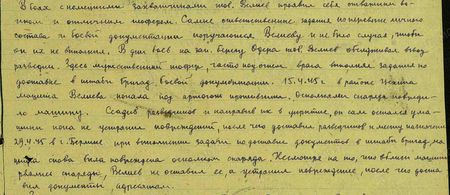 В боях с немецкими захватчиками тов. Велиев проявил себя отважным во-
ином и отличным шофером. Самые ответственные задания по перевозке личного
состава и боевой документации поручаются Велиеву и не было случая, чтобы
он их не выполнил. В дни боев на зап. берегу Одера тов. Велиев обслуживал взвод
разведки. Здесь мужественный шофер, часто под огнем врага выполнял задания по
доставке в штаб бригад. боевой документации. 15.4.45 г. в районе
машина Велиева попала под артогонь противника. Осколками снаряда повреди-
ло машину. Ссадив разведчиков и направив их в укрытие, он сам остался у ма-
шины пока не устранил повреждение, после чего доставил разведчиков к месту назначения
29.4.45 в г. Берлине при выполнении задачи по доставке документов в штаб бригад, ма-
шина снова была повреждена осколком снаряда. Несмотря на то, что вблизи машины
рвались снаряды, Велиев не оставил ее, а устранил повреждение, после чего доста-
вил документы адресатам.